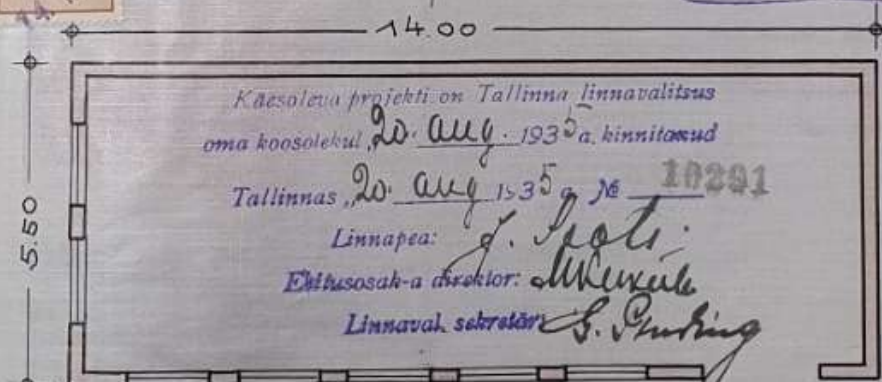 14.00
5.50
Käesoleva projekti on Tallinna linnavalitsus
oma koosolekul 20. aug. 1935 a. kinnitanud
Tallinnas, 20. aug 1935 a № 10291
Linnapea:
Ehitusosak-a direktor:
Linnaval. sekretär: